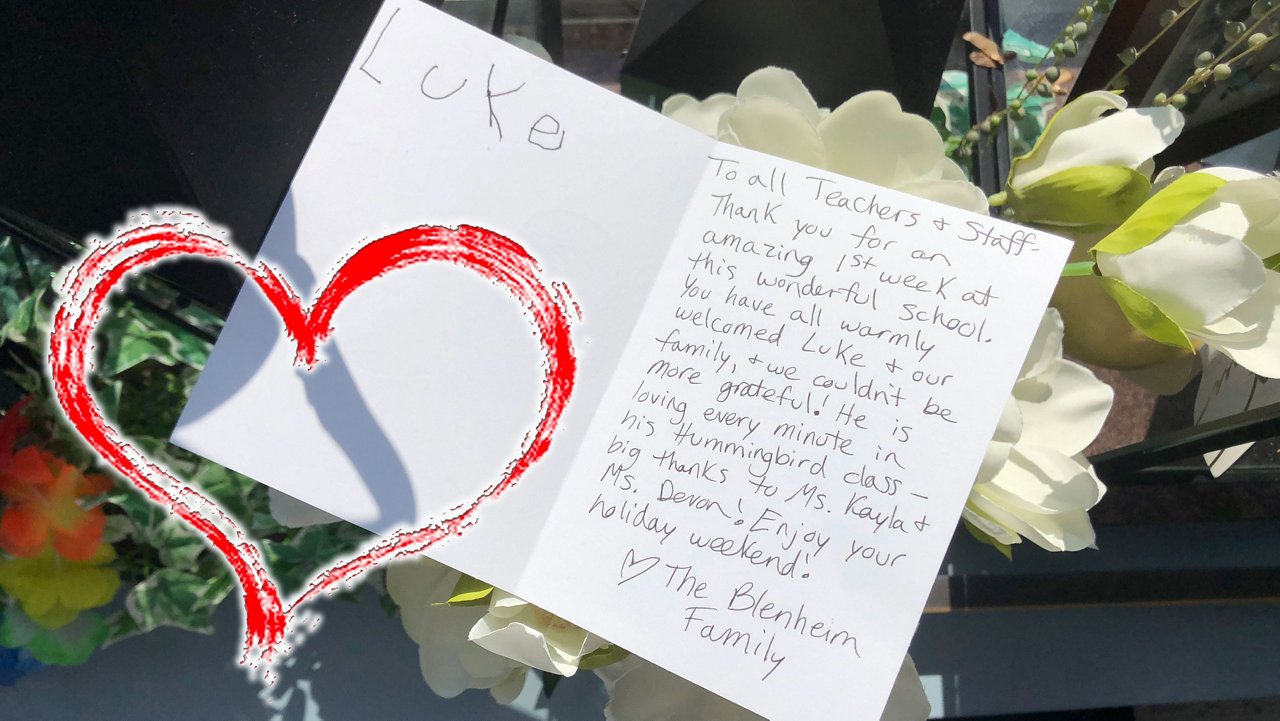 Luke
To all Teachers & Staff-
Thank you for an
amazing 1st week at
this wonderful school.
You have all warmly
welcomed Luke & our
family, & we couldn't be
more grateful! He is
loving every minute in
his Hummingbird class –
big thanks to Ms. Kayla &
Ms. Devon! Enjoy your
holiday weekend!
♡ The Blenheim
Family